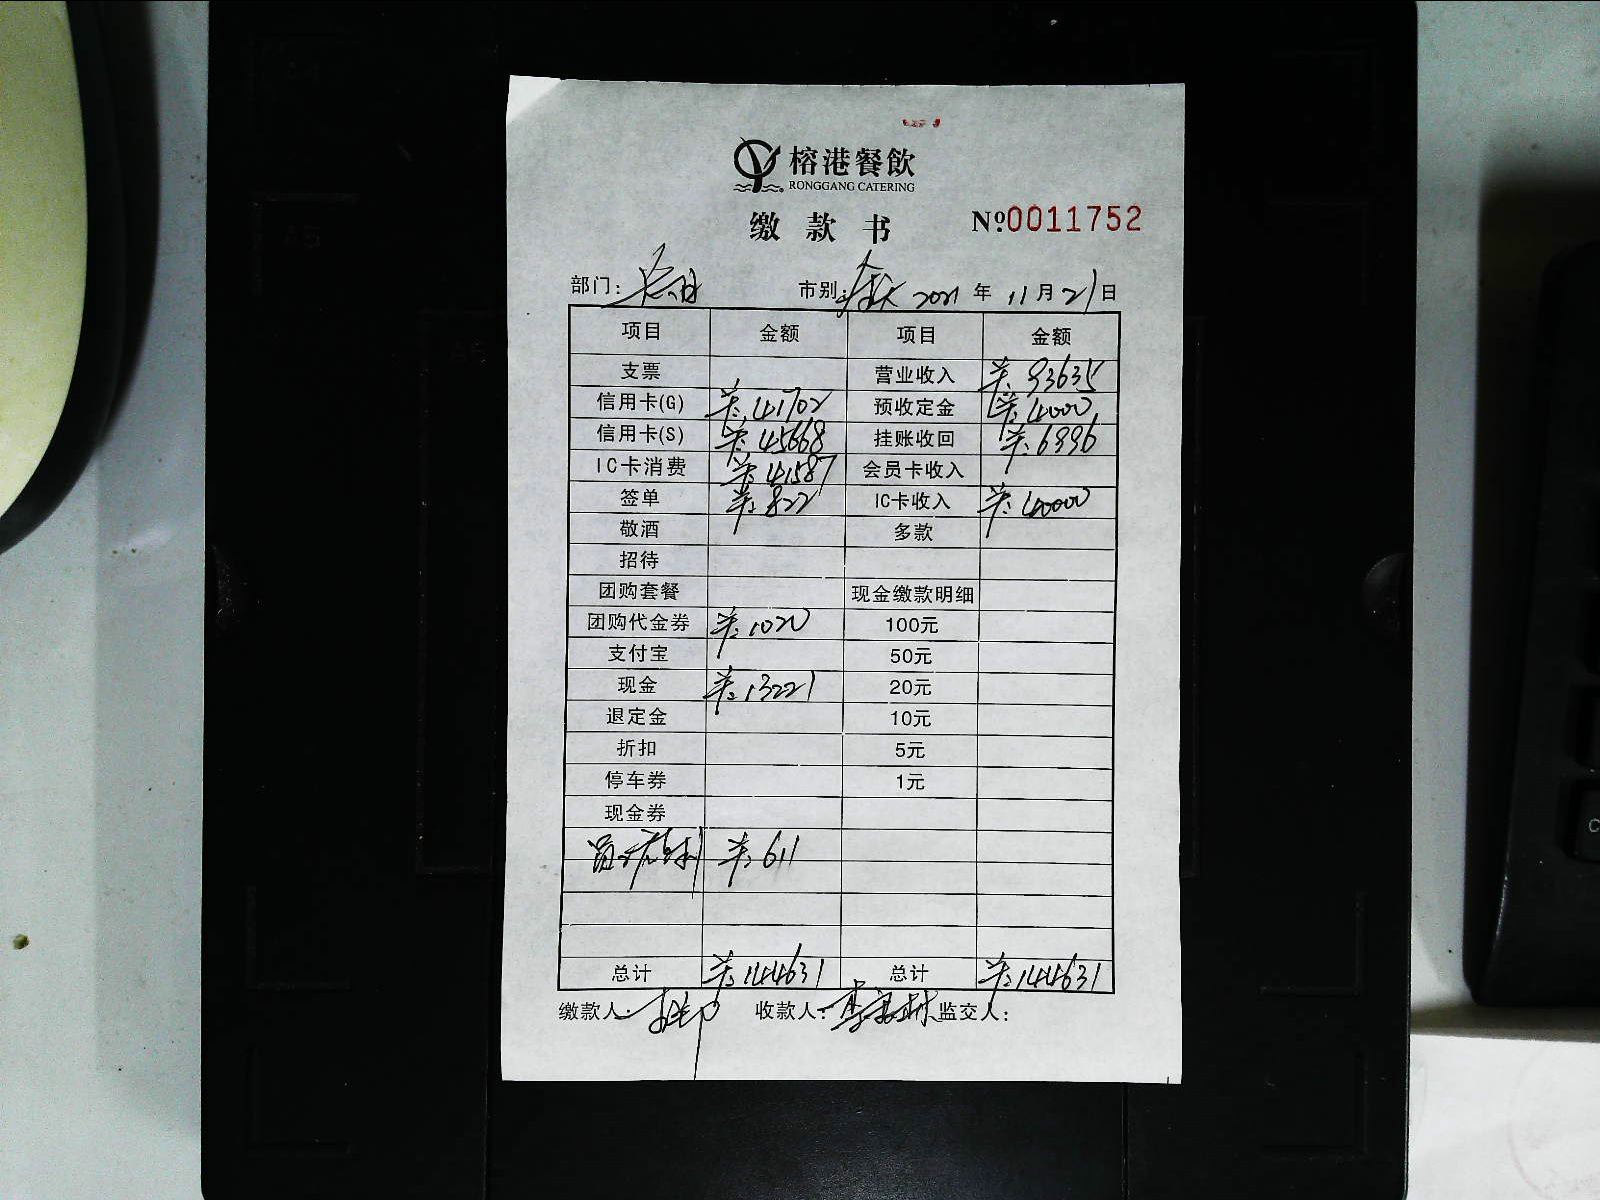 榕港餐飲
RONGGANG CATERING
缴款书 №0011752
部门: 市别: 全天 2021 年 11 月 21 日
项目 金额 项目 金额
支票 营业收入 ¥:93635
信用卡(G) ¥:41702 预收定金 ¥:4000
信用卡(S) ¥:45668 挂账收回 ¥:6996
IC卡消费 ¥:41587 会员卡收入
签单 ¥:822 IC卡收入 ¥:40000
敬酒 多款
招待
团购套餐 现金缴款明细
团购代金券 ¥:1020 100元
支付宝 50元
现金 ¥:13221 20元
退定金 10元
折扣 5元
停车券 1元
现金券
员工福利 ¥:611
总计 ¥:144631 总计 ¥:144631
缴款人: 收款人: 监交人: